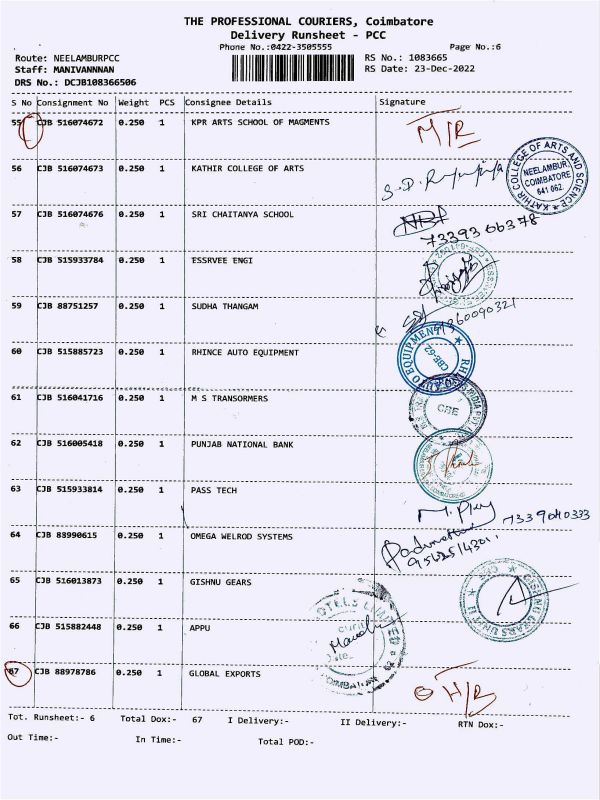 THE PROFESSIONAL COURIERS, Coimbatore
Delivery Runsheet - PCC
Phone No.:0422-3505555 Page No.:6
Route: NEELAMBURPCC RS No.: 1083665
Staff: MANIVANNNAN RS Date: 23-Dec-2022
DRS No.: DCJB108366506
S No Consignment No Weight PCS Consignee Details Signature
55 CJB 516074672 0.250 1 KPR ARTS SCHOOL OF MAGMENTS
56 CJB 516074673 0.250 1 KATHIR COLLEGE OF ARTS
KATHIR COLLEGE OF ARTS AND SCIENCE
NEELAMBUR
COIMBATORE
641 062.
57 CJB 516074676 0.250 1 SRI CHAITANYA SCHOOL
73393 66378
58 CJB 515933784 0.250 1 ESSRVEE ENGI
59 CJB 88751257 0.250 1 SUDHA THANGAM
60 CJB 515885723 0.250 1 RHINCE AUTO EQUIPMENT
CBE-62
61 CJB 516041716 0.250 1 M S TRANSORMERS
CBE
62 CJB 516005418 0.250 1 PUNJAB NATIONAL BANK
63 CJB 515933814 0.250 1 PASS TECH
7339040333
64 CJB 88990615 0.250 1 OMEGA WELROD SYSTEMS
65 CJB 516013873 0.250 1 GISHNU GEARS
66 CJB 515882448 0.250 1 APPU
67 CJB 88978786 0.250 1 GLOBAL EXPORTS
Tot. Runsheet:- 6 Total Dox:- 67 I Delivery:- II Delivery:- RTN Dox:-
Out Time:- In Time:- Total POD:-